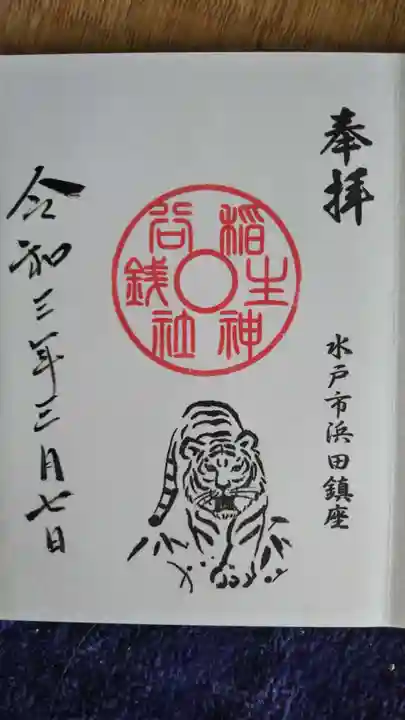 奉拝
水戸市浜田鎮座
銭谷稲生神社
令和三年三月七日